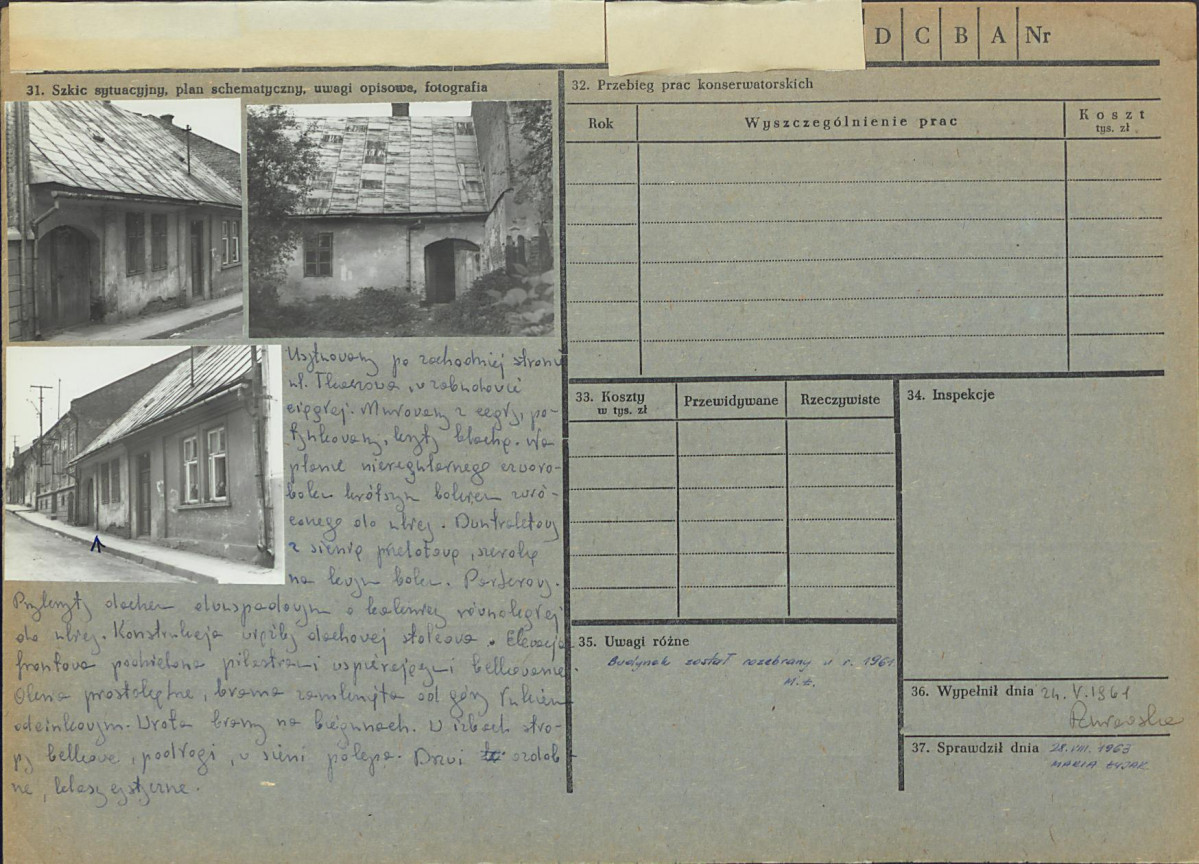 D C B A Nr
31. Szkic sytuacyjny, plan schematyczny, uwagi opisowe, fotografia
Usytuowany po zachodniej stronie
ul. Tkackiej, w zabudowie
ciągłej. Murowany z cegły, po-
tynkowany, kryty blachą. Na
planie nieregularnego czworo-
boku krótszym bokiem zwró-
conego do ulicy. Dwutraktowy
z sienią przelotową, szeroką
na lewym boku. Parterowy.
Przykryty dachem dwuspadowym o kalenicy równoległej
do ulicy. Konstrukcja więźby dachowej stolcowa. Elewacja
frontowa podzielona pilastrami wspierającymi belkowanie.
Okna prostokątne, brama zamknięta od góry łukiem
odcinkowym. Wrota bramy na biegunach. W izbach stro-
py belkowe, podłogi, w sieni polepa. Drzwi ozdob-
ne, klasycystyczne.
32. Przebieg prac konserwatorskich
Rok Wyszczególnienie prac Koszt
tys. zł
33. Koszty
w tys. zł Przewidywane Rzeczywiste
34. Inspekcje
35. Uwagi różne
Budynek został rozebrany w r. 1961
M.Ł.
36. Wypełnił dnia 24.V.1961
37. Sprawdził dnia 28.VIII.1963
MARIA ŁYJAK